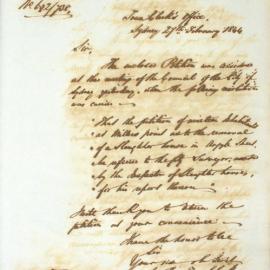 No 642/700
Town Clerk's Office,
Sydney 27th February 1844
Sir,
The enclosed Petition was received
at the meeting of the Council of the City of
Sydney yesterday, when the following resolution
was carried
"That the petition of nineteen Inhabitants
at Millers point as to the removal
of a Slaughter house in Argyle Street
be referred to the City Surveyor, and
by the Inspector of Slaughter houses,
for his report thereon"
I will thank you to return the
petition at your convenience
I have the honor to be
Sir
Your